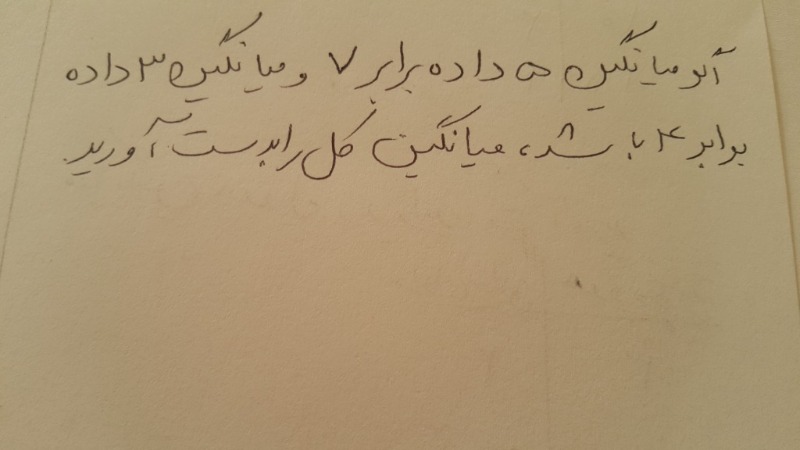 اگر میانگین ۵ داده برابر ۷ و میانگین ۳ داده
برابر ۴ باشد، میانگین کل را بدست آورید.